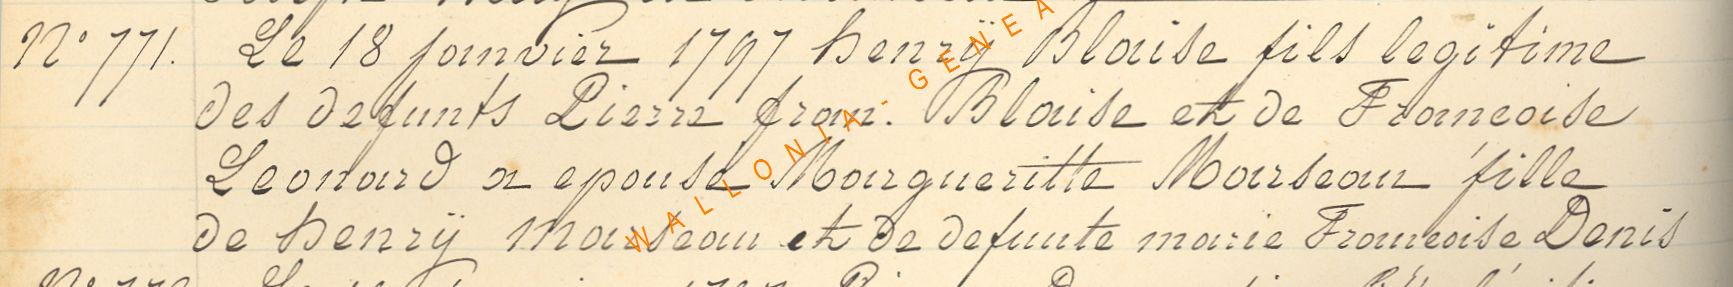 N° 771. Le 18 janvier 1797 henrÿ Blaise fils legitime
des defunts Pierre fran. Blaise et de Francoise
Leonard a epousé Margueritte Marseau fille
de henrÿ marseau et de defunte marie Francoise Denis
WALLONIA-GENEA